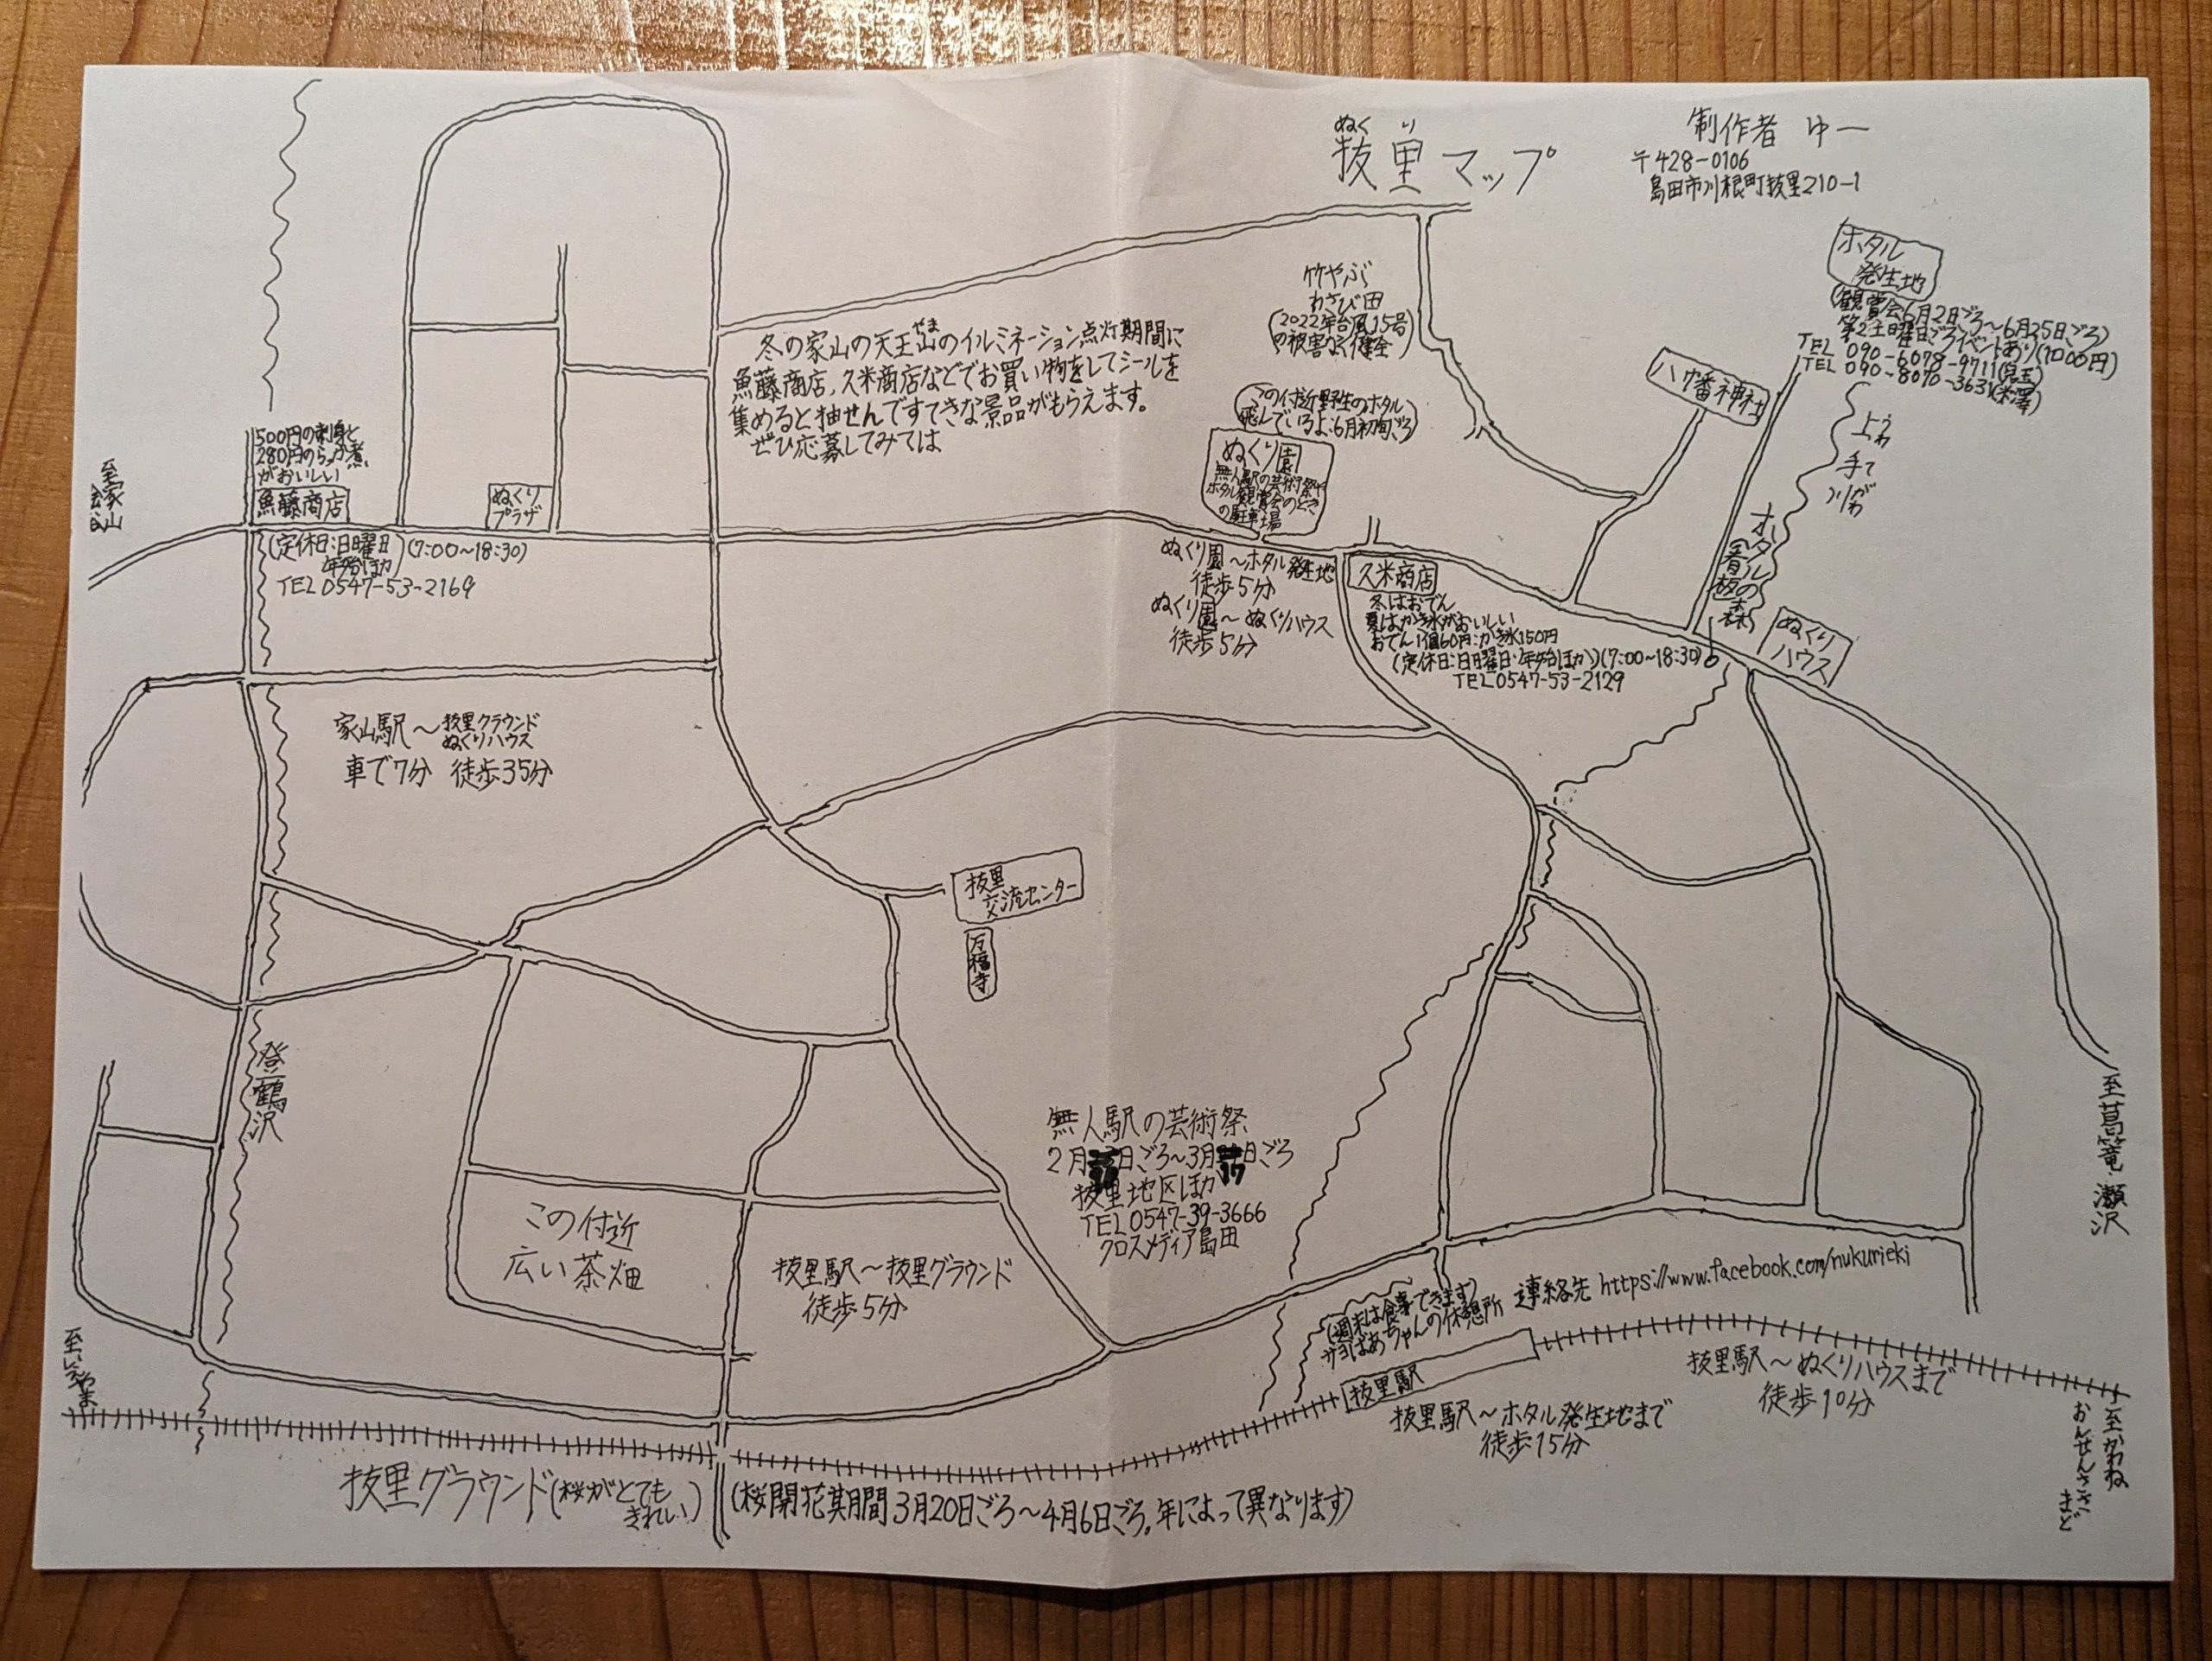 ぬくり
抜里マップ
制作者 ゆー
〒428-0106
島田市川根町抜里210-1
ホタル
発生地
(観賞会6月2日ごろ~6月25日ごろ)
第2土曜日ごろイベントあり(1000円)
TEL 090-6078-9711(児玉)
TEL 090-8070-3631(米澤)
竹やぶ
わさび田
(2022年台風15号
の被害なく健全)
八幡神社
うわ
上
手て
川がわ
冬の家山の天王山のイルミネーション点灯期間に
やま
魚藤商店,久米商店などでお買い物をしてシールを
集めると抽せんですてきな景品がもらえます。
ぜひ応募してみては
この付近野生のホタル
飛んでいるよ:6月初旬ごろ
ぬくり園
無人駅の芸術祭や
ホタル観賞会のとき
の駐車場
500円の刺身と
がおいしい
魚藤商店
(定休日:日曜日
年始ほか)(7:00~18:30)
TEL 0547-53-2169
至家山
ぬくり
プラザ
ぬくり園~ホタル発生地
徒歩5分
ぬくり園~ぬくりハウス
徒歩5分
久米商店
冬はおでん
夏はかき氷がおいしい
おでん1個60円:かき氷150円
(定休日:日曜日・年始ほか)(7:00~18:30)
TEL 0547-53-2129
ホタルの森
看板
ぬくり
ハウス
家山駅~抜里グラウンド
ぬくりハウス
車で7分 徒歩35分
抜里
交流センター
万福寺
登鶴沢
無人駅の芸術祭
2月日ごろ~3月17日ごろ
抜里地区ほか
TEL 0547-39-3666
クロスメディア島田
至葛篭・瀬沢
この付近
広い茶畑
抜里駅~抜里グラウンド
徒歩5分
(週末は食事できます)
サヨばあちゃんの休憩所 連絡先 https://www.facebook.com/nukurieki
抜里駅
抜里駅~ホタル発生地まで
徒歩15分
抜里駅~ぬくりハウスまで
徒歩10分
至いえやま
至かわね
おんせんささ
まど
抜里グラウンド(桜がとても
きれい)
(桜開花期間3月20日ごろ~4月6日ごろ。年によって異なります)